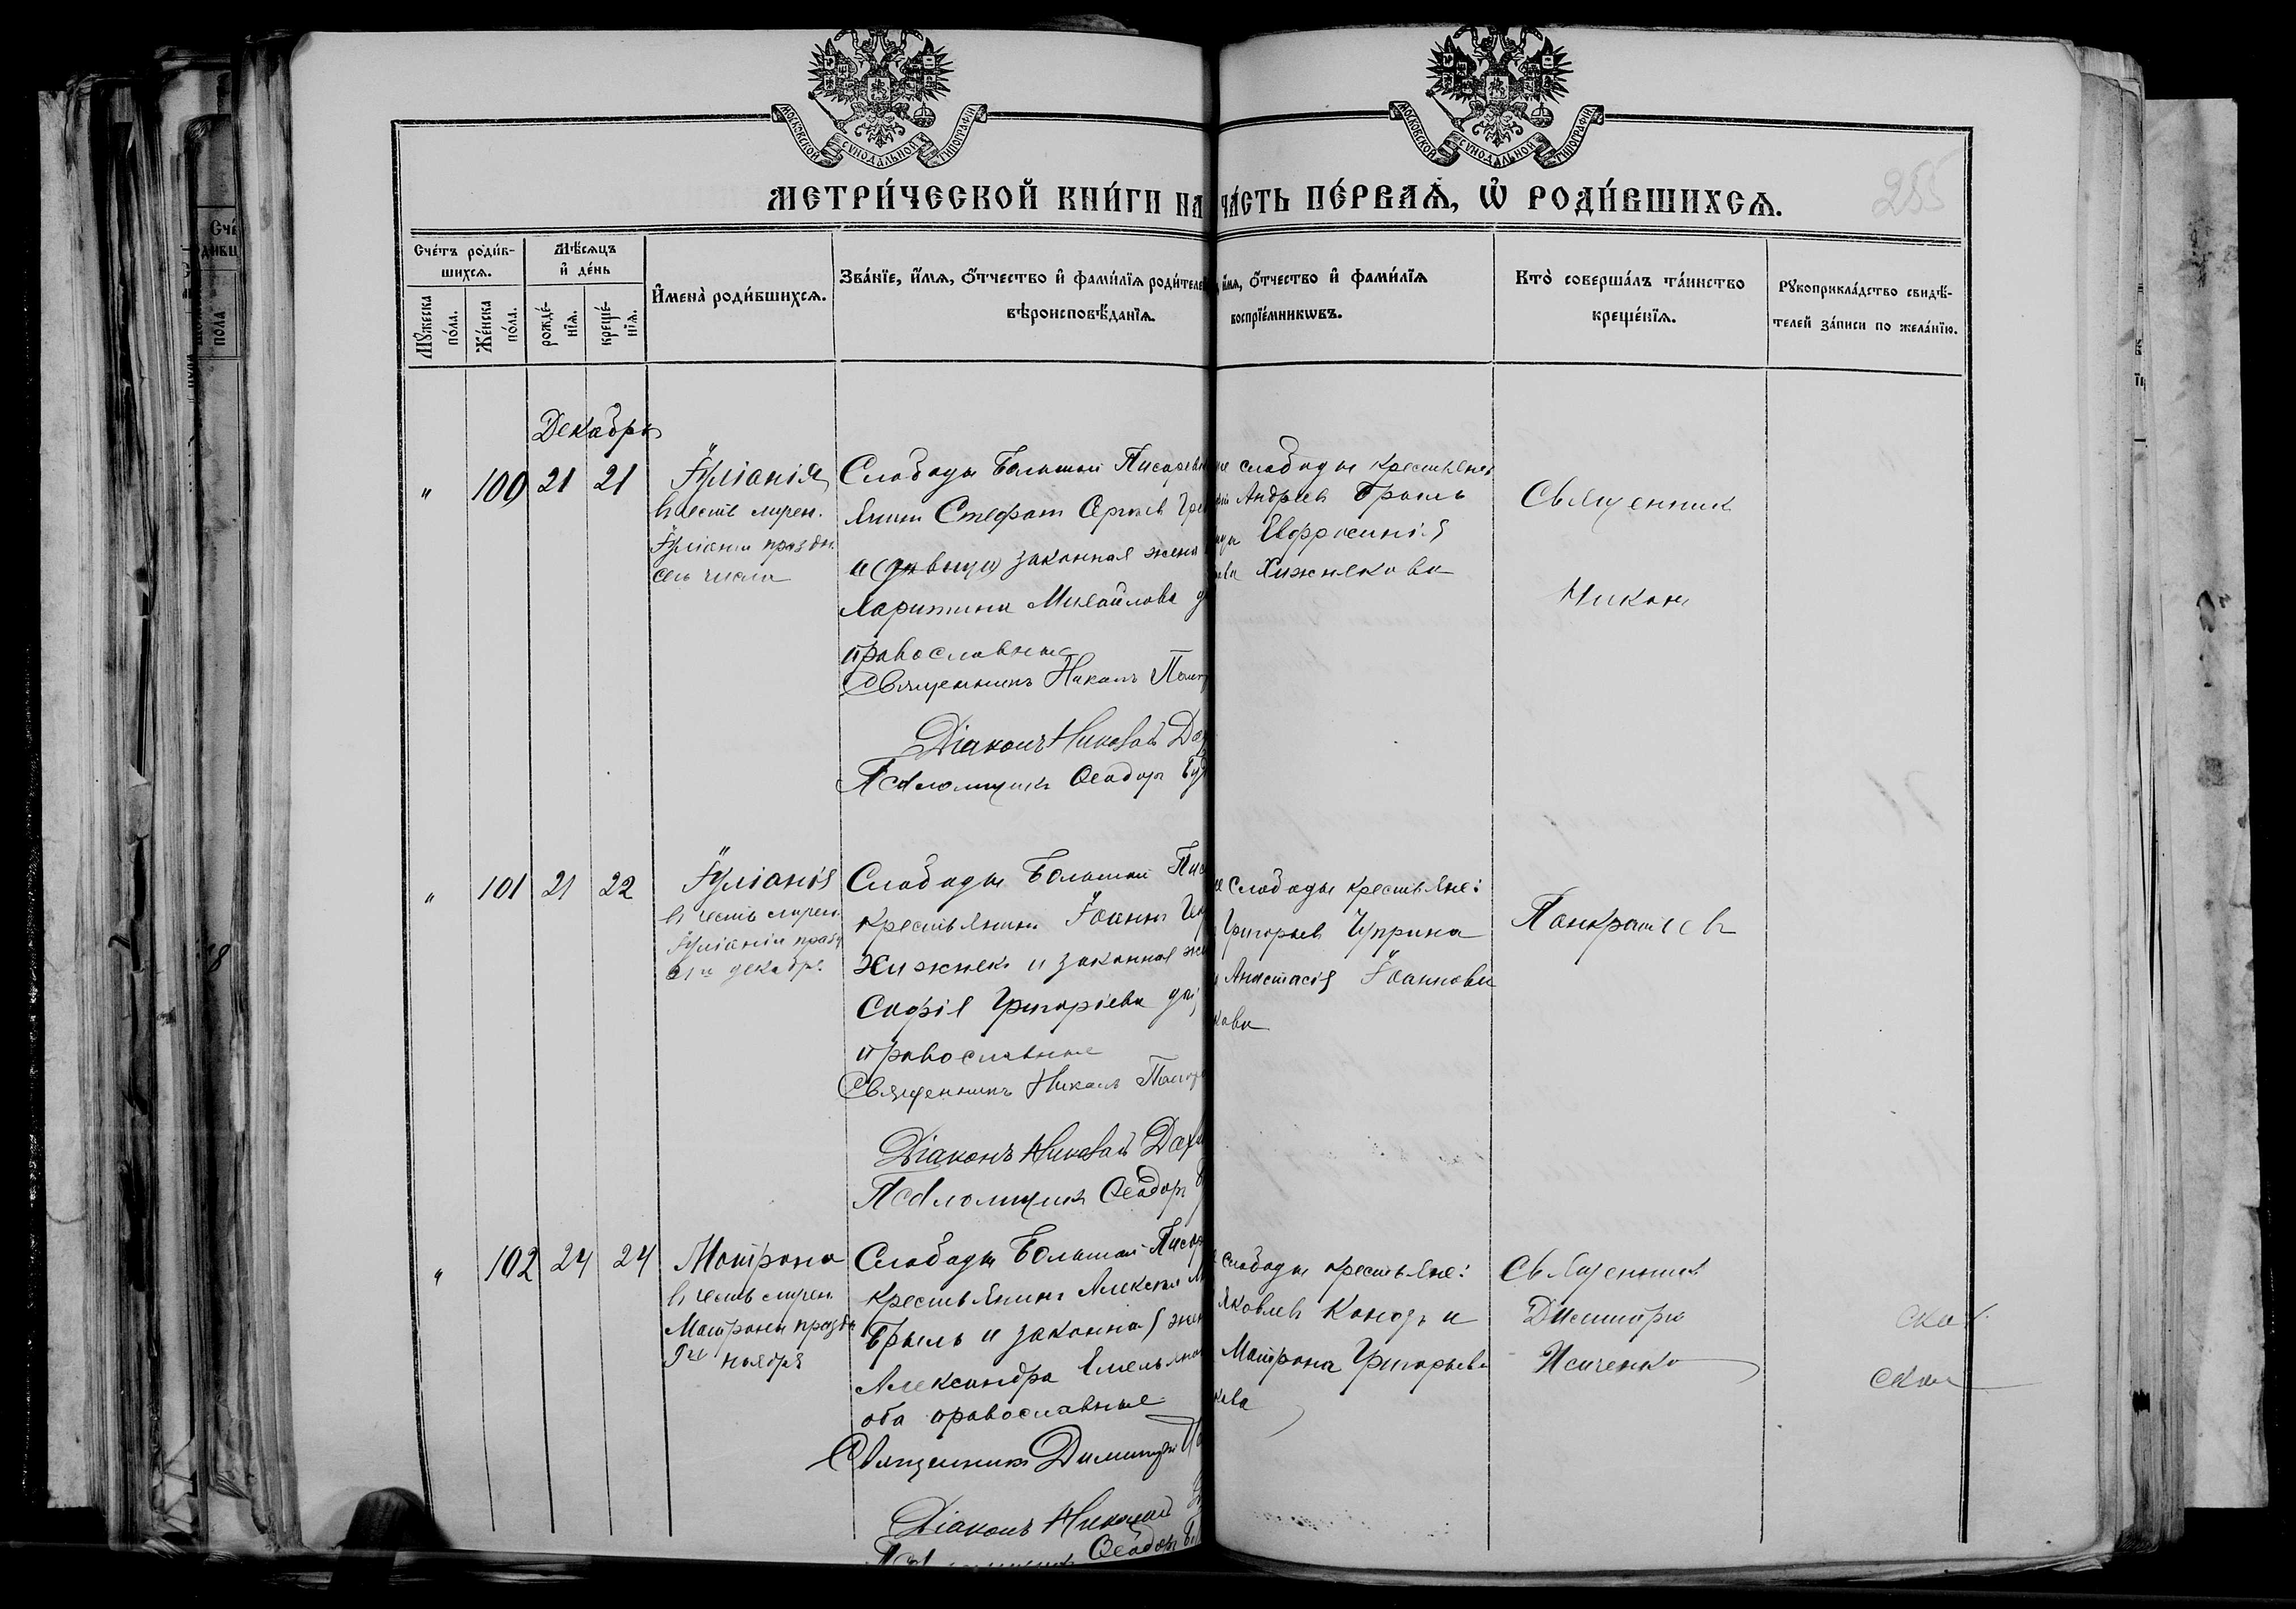 МОСКОВСКОЙ СѴНОДАЛЬНОЙ ТИПОГРАФІИ
МОСКОВСКОЙ СѴНОДАЛЬНОЙ ТИПОГРАФІИ
МЕТРИ́ЧЕСКОЙ КНИ́ГИ НА ЧА́СТЬ ПЕ́РВАѦ, Ѡ҆ РОДИ́ВШИХСѦ.
255
Сче́тъ роди́в-
шихсѧ.
Мѣ́сѧцъ
и҆ де́нь
Мꙋ́жеска
по́ла.
Же́нска
по́ла.
рожде́-
нїѧ.
креще́-
нїѧ.
И҆мена̀ роди́вшихсѧ.
Зва́нїе, и҆́мѧ, ѻ҆́тчество и҆ фами́лїѧ роди́телей
вѣроисповѣ́данїѧ.
и҆́мѧ, ѻ҆́тчество и҆ фами́лїѧ
воспрїе́мникѡвъ.
Кто̀ соверша́лъ та́инство
креще́нїѧ.
Рꙋкоприкла́дство свидѣ́-
телей за́писи по жела́нїю.
Декабрь
" 100 21 21
Іуліанія
въ честь мучен.
Іуліаніи праздн.
сего числа
Слободы Большой Писаревки
Стефан Сергіев
законная жена
Харитина Михайлова
православные
Священникъ Никонъ
Діаконъ Николай
Псаломщикъ Ѳеодоръ
слободы крестьяне
Андреев Брыль
Евфросинія
Хижнякова
Священник
Никон
" 101 21 22
Іуліанія
въ честь мучен.
Іуліаніи празд.
21го декабря
Слободы Большой
крестьянин Іоанн
Хижняк и законная
Софія Григоріева
православные
Священникъ Никонъ
Діаконъ Николай
Псаломщикъ Ѳеодоръ
слободы крестьяне:
Григорьев Чуприна
Анастасія Іоаннова
кова
Панкратьев
" 102 24 24
Матрона
въ честь мучен.
Матроны праздн.
9го ноября
Слободы Большой
крестьянин Алексей
Брыль и законная
Александра Емельянова
оба православные
Священник Димитрій
Діаконъ Николай
Ѳеодоръ
слободы крестьяне:
Яковлев и
Матрона Григорьева
кова
Священник
Димитрій
Исиченко